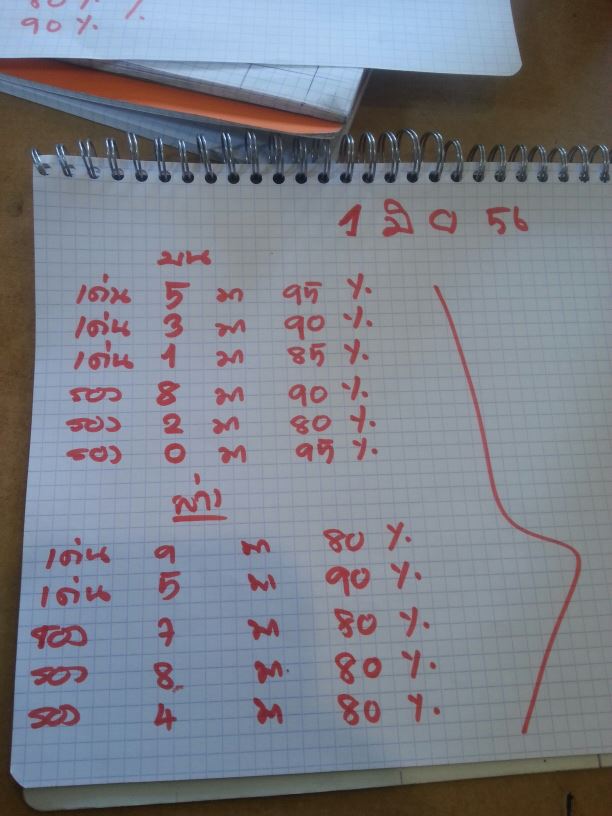 80 % %
90 %.
1 มิ ย 56
บน
เด่น 5 มา 95 %
เด่น 3 มา 90 %
เด่น 1 มา 85 %
รอง 8 มา 90 %
รอง 2 มา 80 %
รอง 0 มา 95 %
ล่าง
เด่น 9 มา 80 %
เด่น 5 มา 90 %
รอง 7 มา 80 %
รอง 8 มา 80 %
รอง 4 มา 80 %